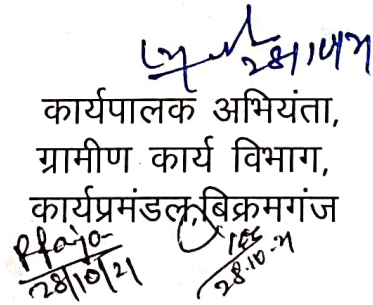 28/10/21
कार्यपालक अभियंता,
ग्रामीण कार्य विभाग,
कार्यप्रमंडल,बिक्रमगंज
28/10/21
28.10.21